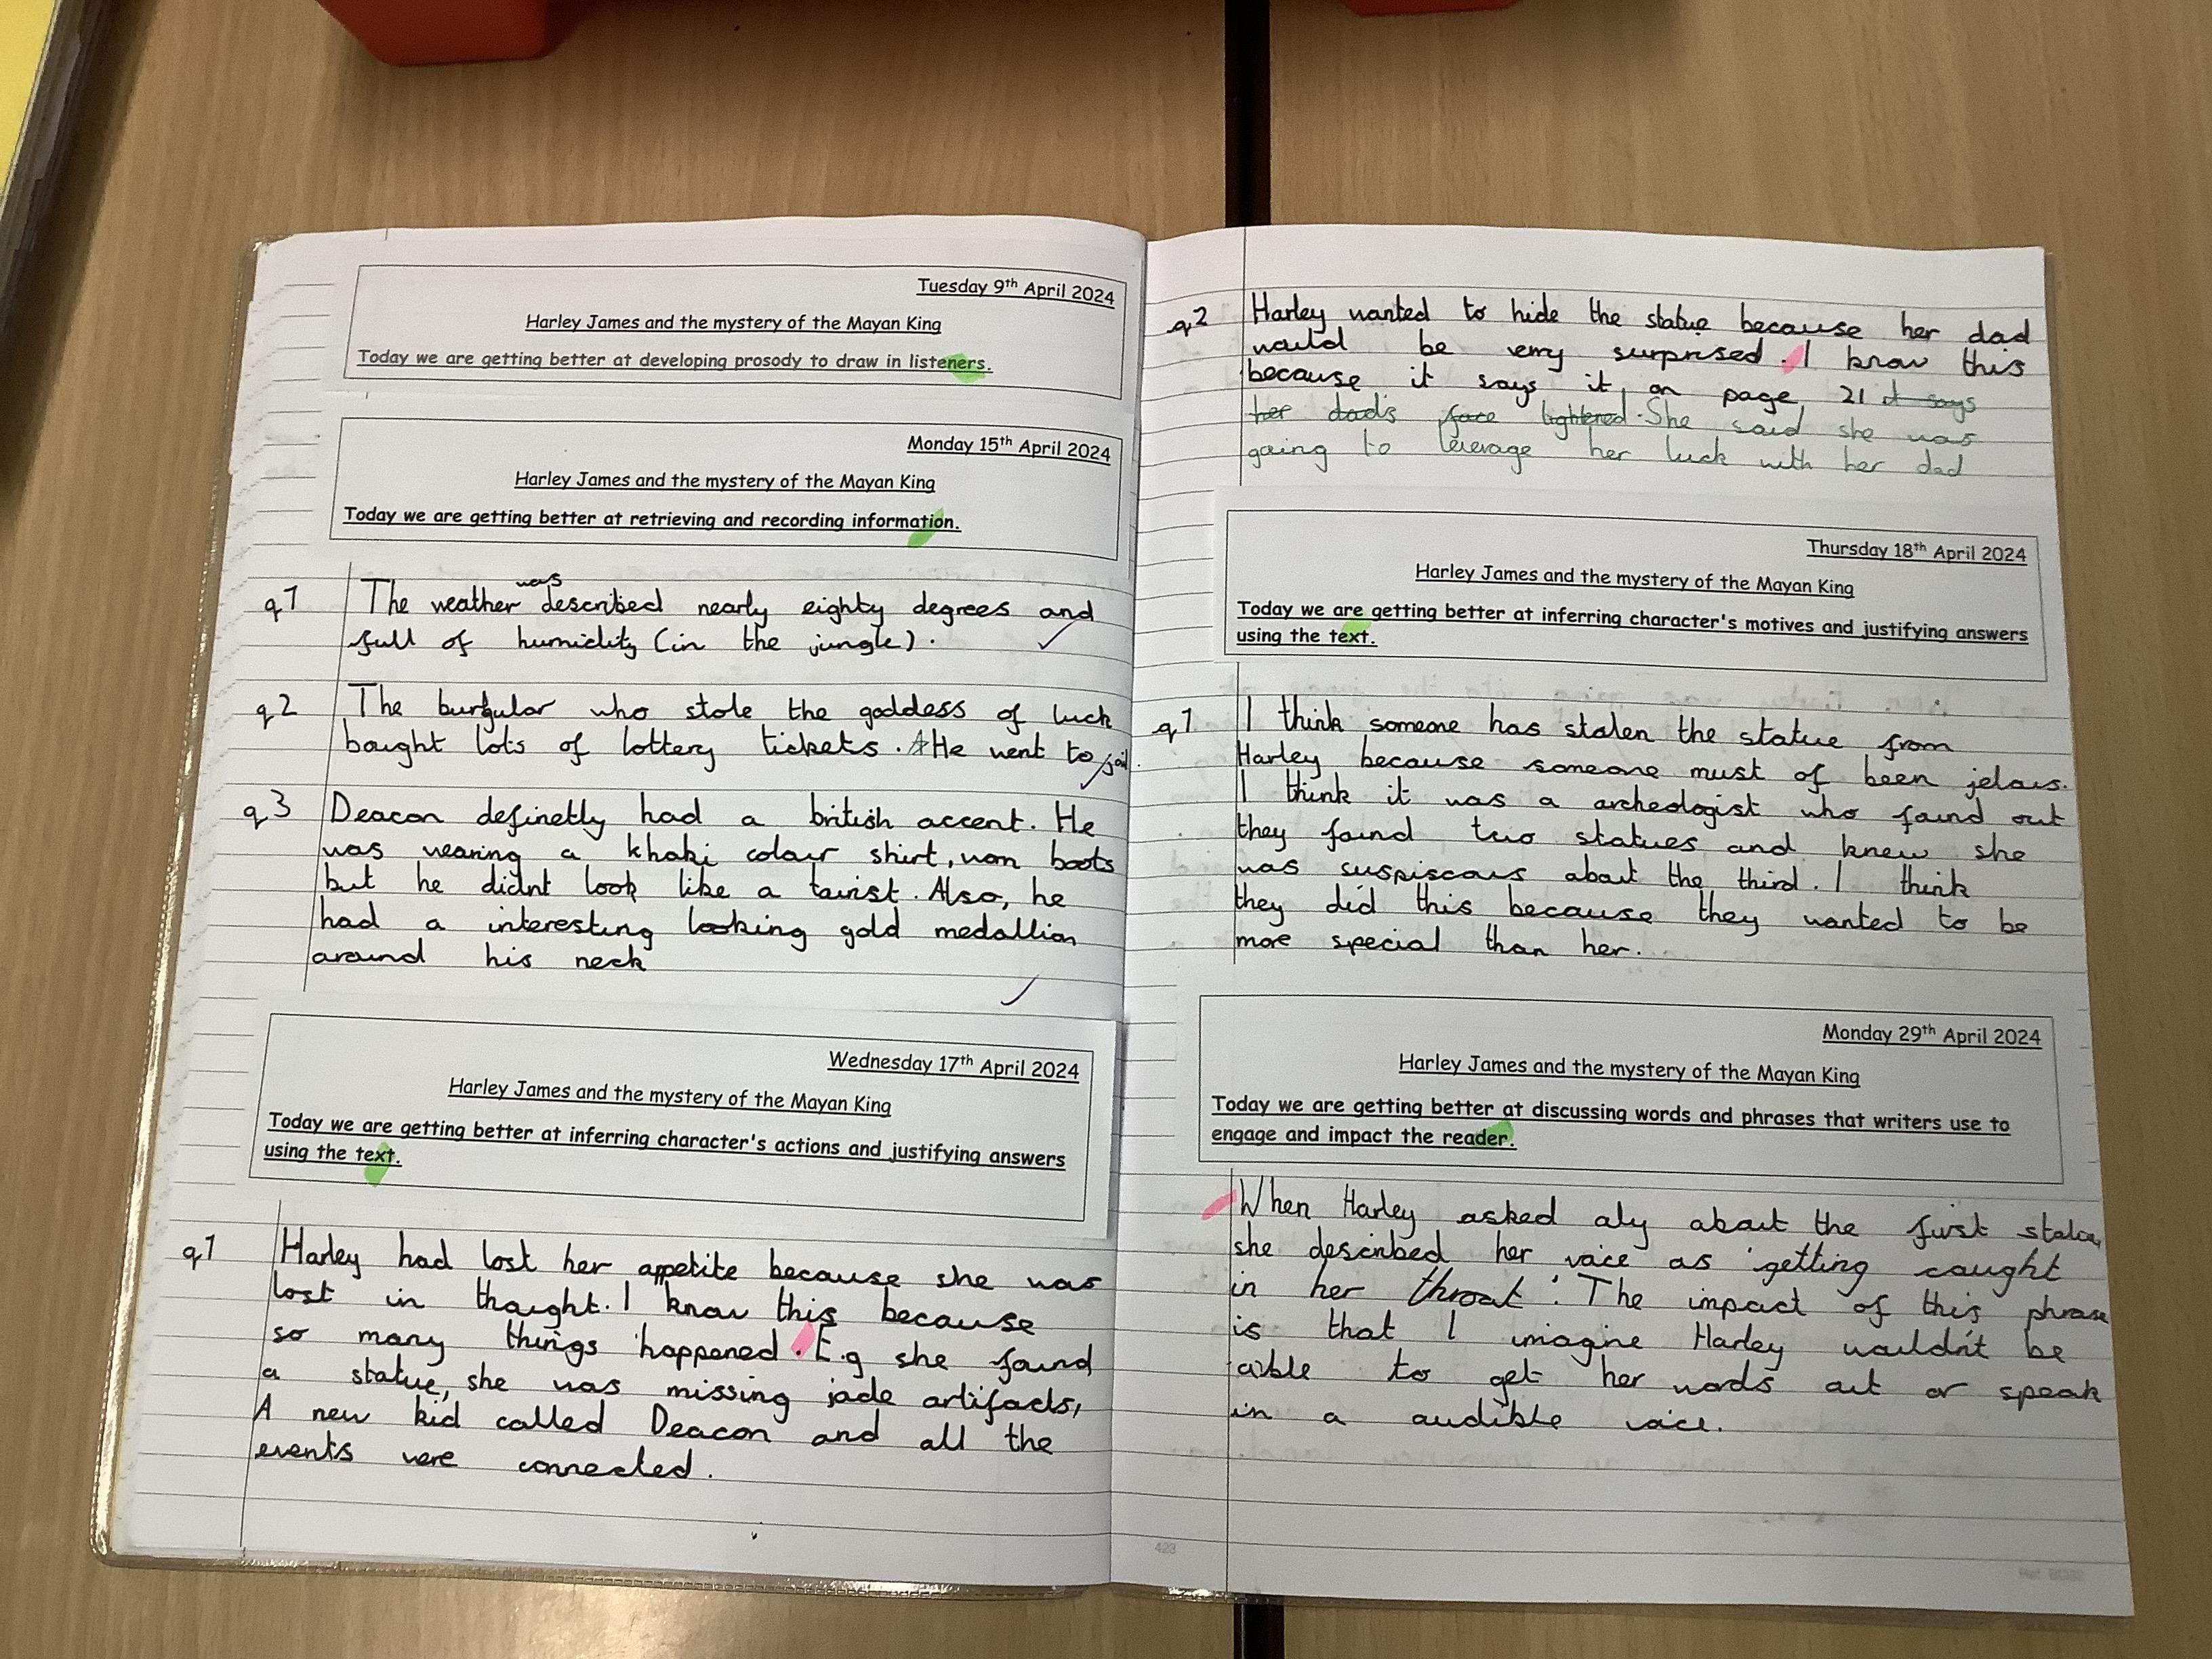 Tuesday 9th April 2024
Harley James and the mystery of the Mayan King
Today we are getting better at developing prosody to draw in listeners.
Monday 15th April 2024
Harley James and the mystery of the Mayan King
Today we are getting better at retrieving and recording information.
was
q1 The weather described nearly eighty degrees and
full of humidity (in the jungle).
q2 The burgular who stole the goddess of luck
bought lots of lottery tickets. He went to jail.
q3 Deacon definetly had a british accent. He
was wearing a khaki colour shirt, worn boots
but he didnt look like a tourist. Also, he
had a interesting looking gold medallion
around his neck
Wednesday 17th April 2024
Harley James and the mystery of the Mayan King
Today we are getting better at inferring character's actions and justifying answers
using the text.
q1 Harley had lost her appetite because she was
lost in thought. I know this because
so many things happened. E.g she found
a statue, she was missing jade artifacts,
A new kid called Deacon and all the
events were connected.
q2 Harley wanted to hide the statue because her dad
would be very surprised. I know this
because it says it on page, 21 it says
her dad's face lightened. She said she was
going to leverage her luck with her dad
Thursday 18th April 2024
Harley James and the mystery of the Mayan King
Today we are getting better at inferring character's motives and justifying answers
using the text.
q1 I think someone has stolen the statue from
Harley because someone must of been jelous.
I think it was a archeologist who found out
they found two statues and knew she
was suspiscous about the third. I think
they did this because they wanted to be
more special than her.
Monday 29th April 2024
Harley James and the mystery of the Mayan King
Today we are getting better at discussing words and phrases that writers use to
engage and impact the reader.
When Harley asked aly about the first
she described her voice as 'getting caught
in her throat'. The impact of this phrase
is that I imagine Harley wouldn't be
able to get her words out or speak
in a audible voice.
423